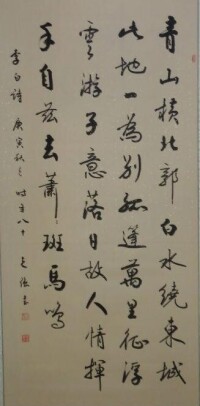 青山橫北郭白水繞東城
此地一為別孤蓬萬里征浮
雲游子意落日故人情揮
手自茲去蕭々斑馬鳴
李白詩 庚寅秋 时年八十